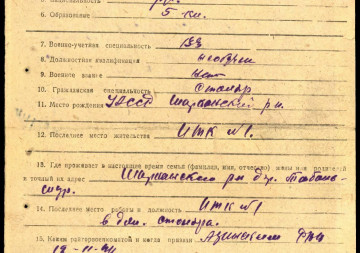 6. Образование 5 кл.
7. Военно-учетная специальность 133
8. Должностная квалификация необуч
9. Военное звание нет
10. Гражданская специальность столяр
11. Место рождения УАССР Шарканский р-н.
12. Последнее место жительства ИТК №1.
13. Где проживает в настоящее время семья (фамилия, имя, отчество) жены или родителей
и точный их адрес Шарканского р-н д.
14. Последнее место работы и должность ИТК №1
в дол. столяра.
15. Каким райгорвоенкоматом и когда призван